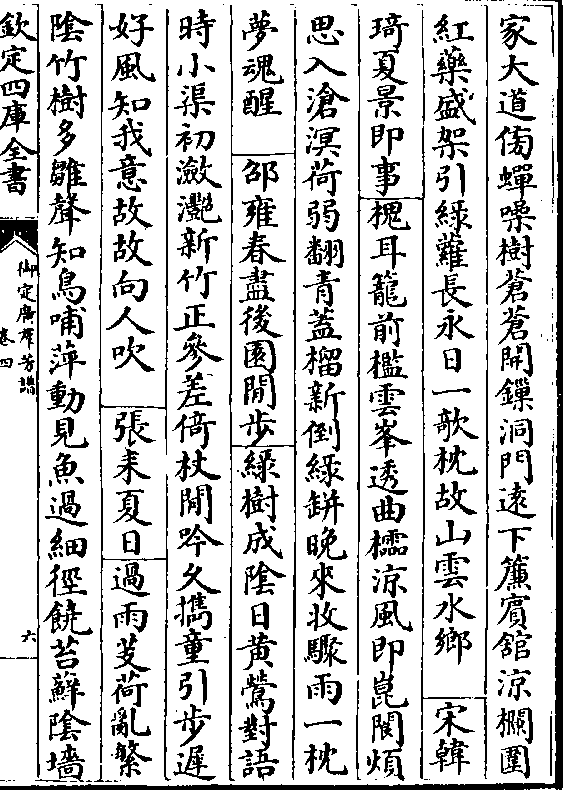 家大道傍蟬噪樹蒼蒼開鏁洞門遠下簾賓舘涼欄圍
紅藥盛架引綠蘿長永日一歌枕故山雲水鄉　宋韓
琦夏景即事槐耳籠前檻雲峯透曲櫺涼風即崑閬煩
思入滄溟荷弱翻青蓋榴新倒綠缾晚來收驟雨一枕
夢魂醒　邵雍春盡後園閒步綠樹成陰日黃鶯對語
時小渠初瀲灔新竹正參差倚杖閒吟久攜童引步遲
好風知我意故故向人吹　張耒夏日過雨芰荷亂繁
陰竹樹多雛聲知鳥哺萍動見魚過細徑饒苔蘚陰墻
欽定四庫全書
御定廣羣芳譜
卷四
六